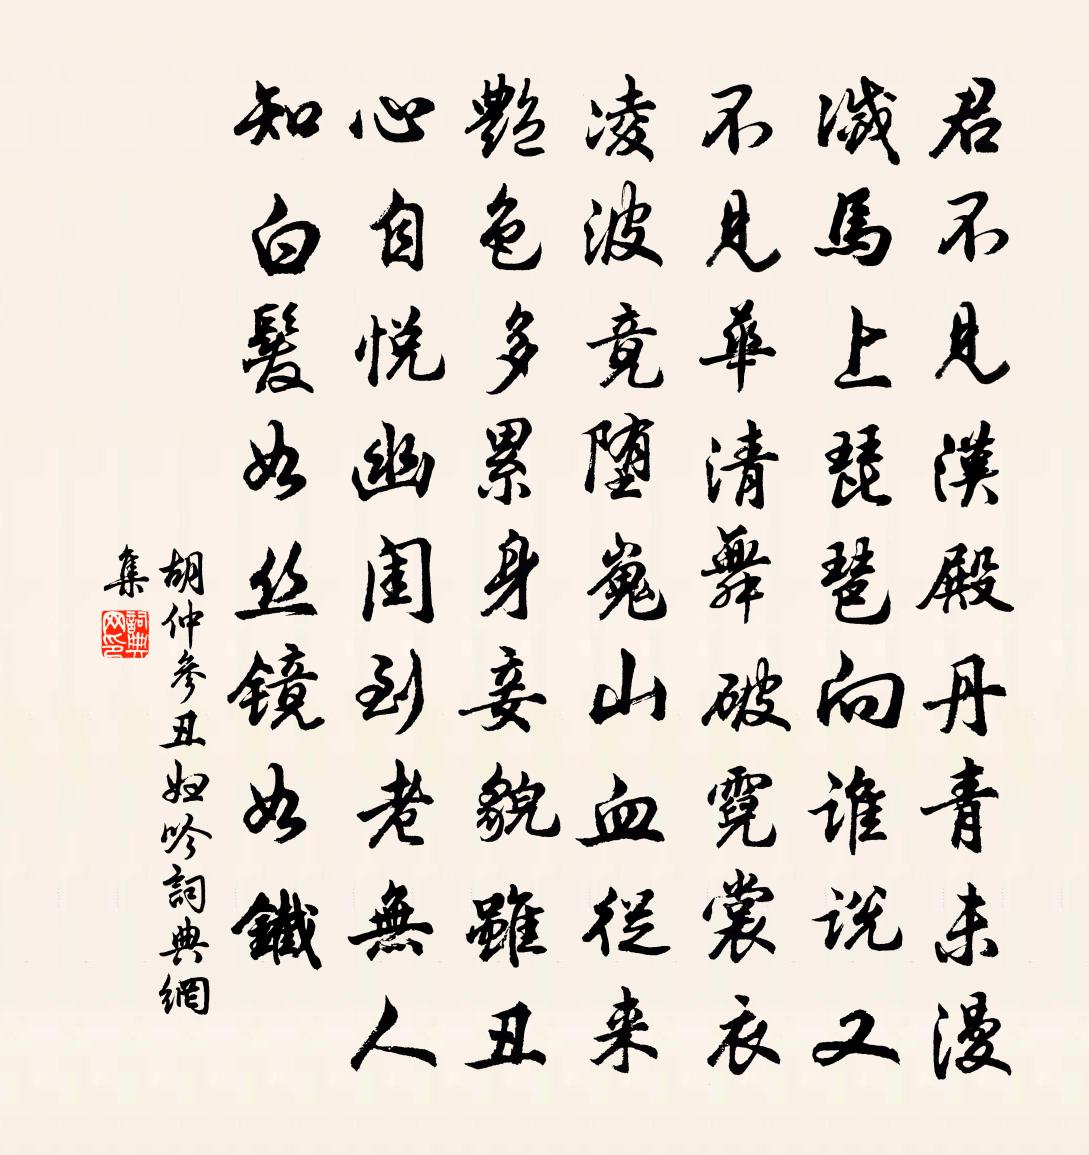 君不見漢殿丹青未漫
滅馬上琵琶向誰説又
不見華清舞破霓裳衣
凌波竟堕嵬山血從来
艷色多累身妾貌雖丑
心自悦幽閨到老無人
知白髮如丝鏡如鐵
胡仲參丑婦吟詞典網
集
詞典網印